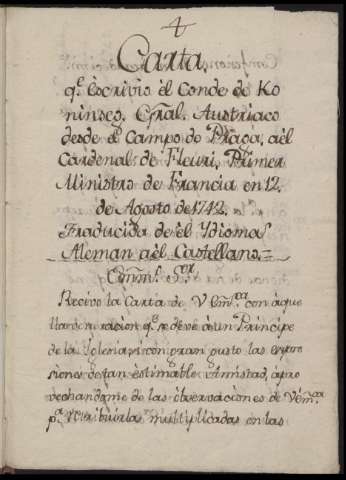 4
Carta,
q.e escrivio èl Conde de Ko
ninseg, Gral. Austriaco
desde el Campo de Praga, aèl
Cardenal de Fleuri, Primer
Ministro de Francia en 12.
de Agosto de 1742.
Traducida de èl Ydioma
Aleman aèl Castellano.=
Emm.º S.or
Recivo la Carta de V Em.cia con aque
lla veneracion q.e se deve à un Principe
de la Iglesia, y con gran gusto las expre
siones de tan estimable Amistad, apro
vechandome de las observaciones de V Em.cia
p.a retribuirlas multiplicadas en las